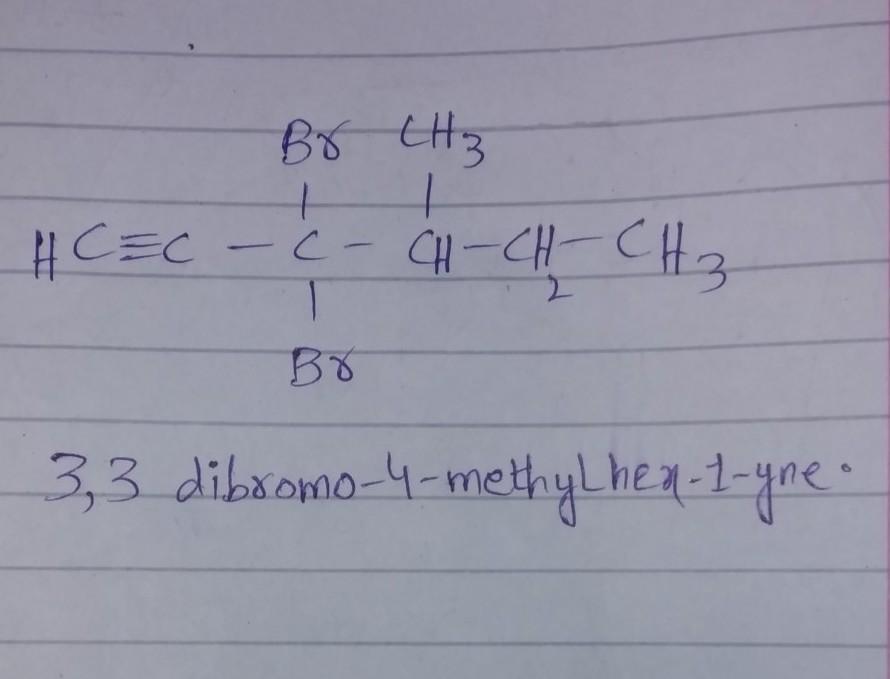 Br CH3
| |
HC≡C – C – CH–CH2–CH3
|
Br
3,3 dibromo-4-methylhex-1-yne.